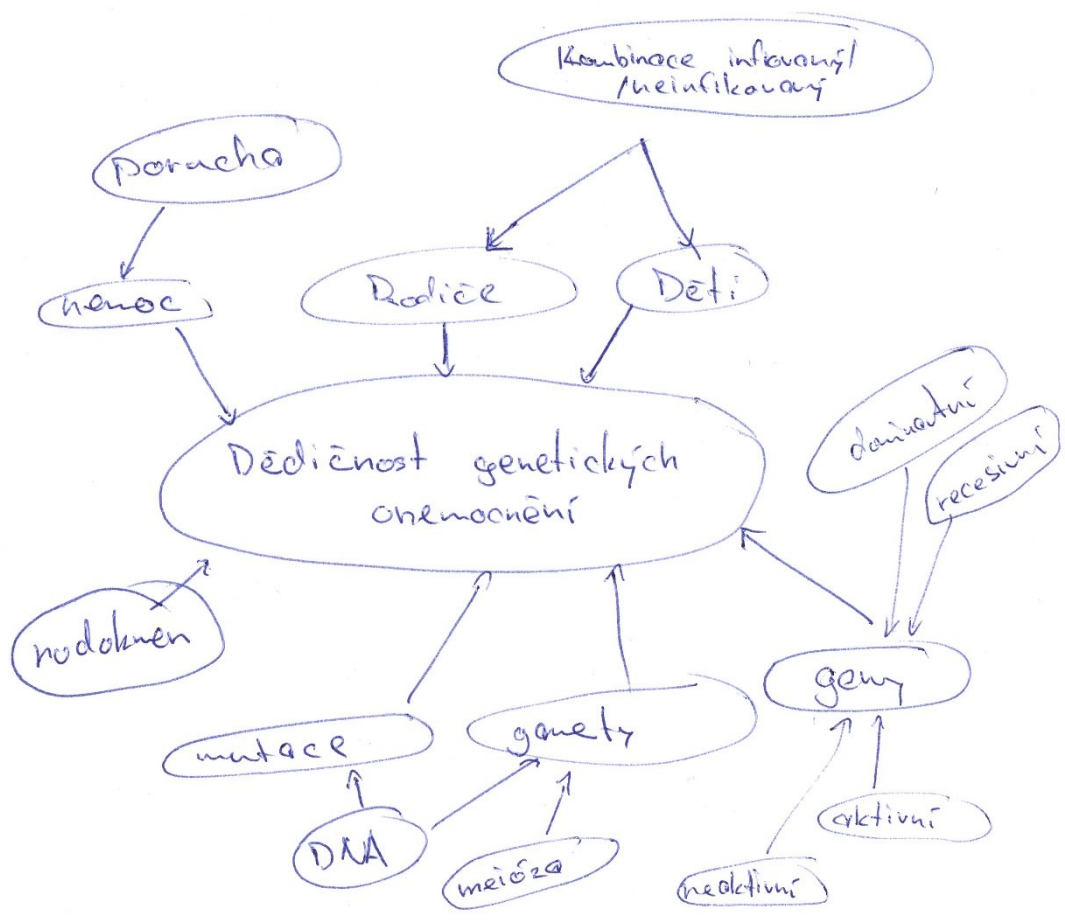 Kombinace infikovaný/
/neinfikovaný
porucha
nemoc
Rodiče
Děti
Dědičnost genetických
onemocnění
dominantní
recesivní
rodokmen
mutace
gamety
geny
DNA
meióza
aktivní
neaktivní